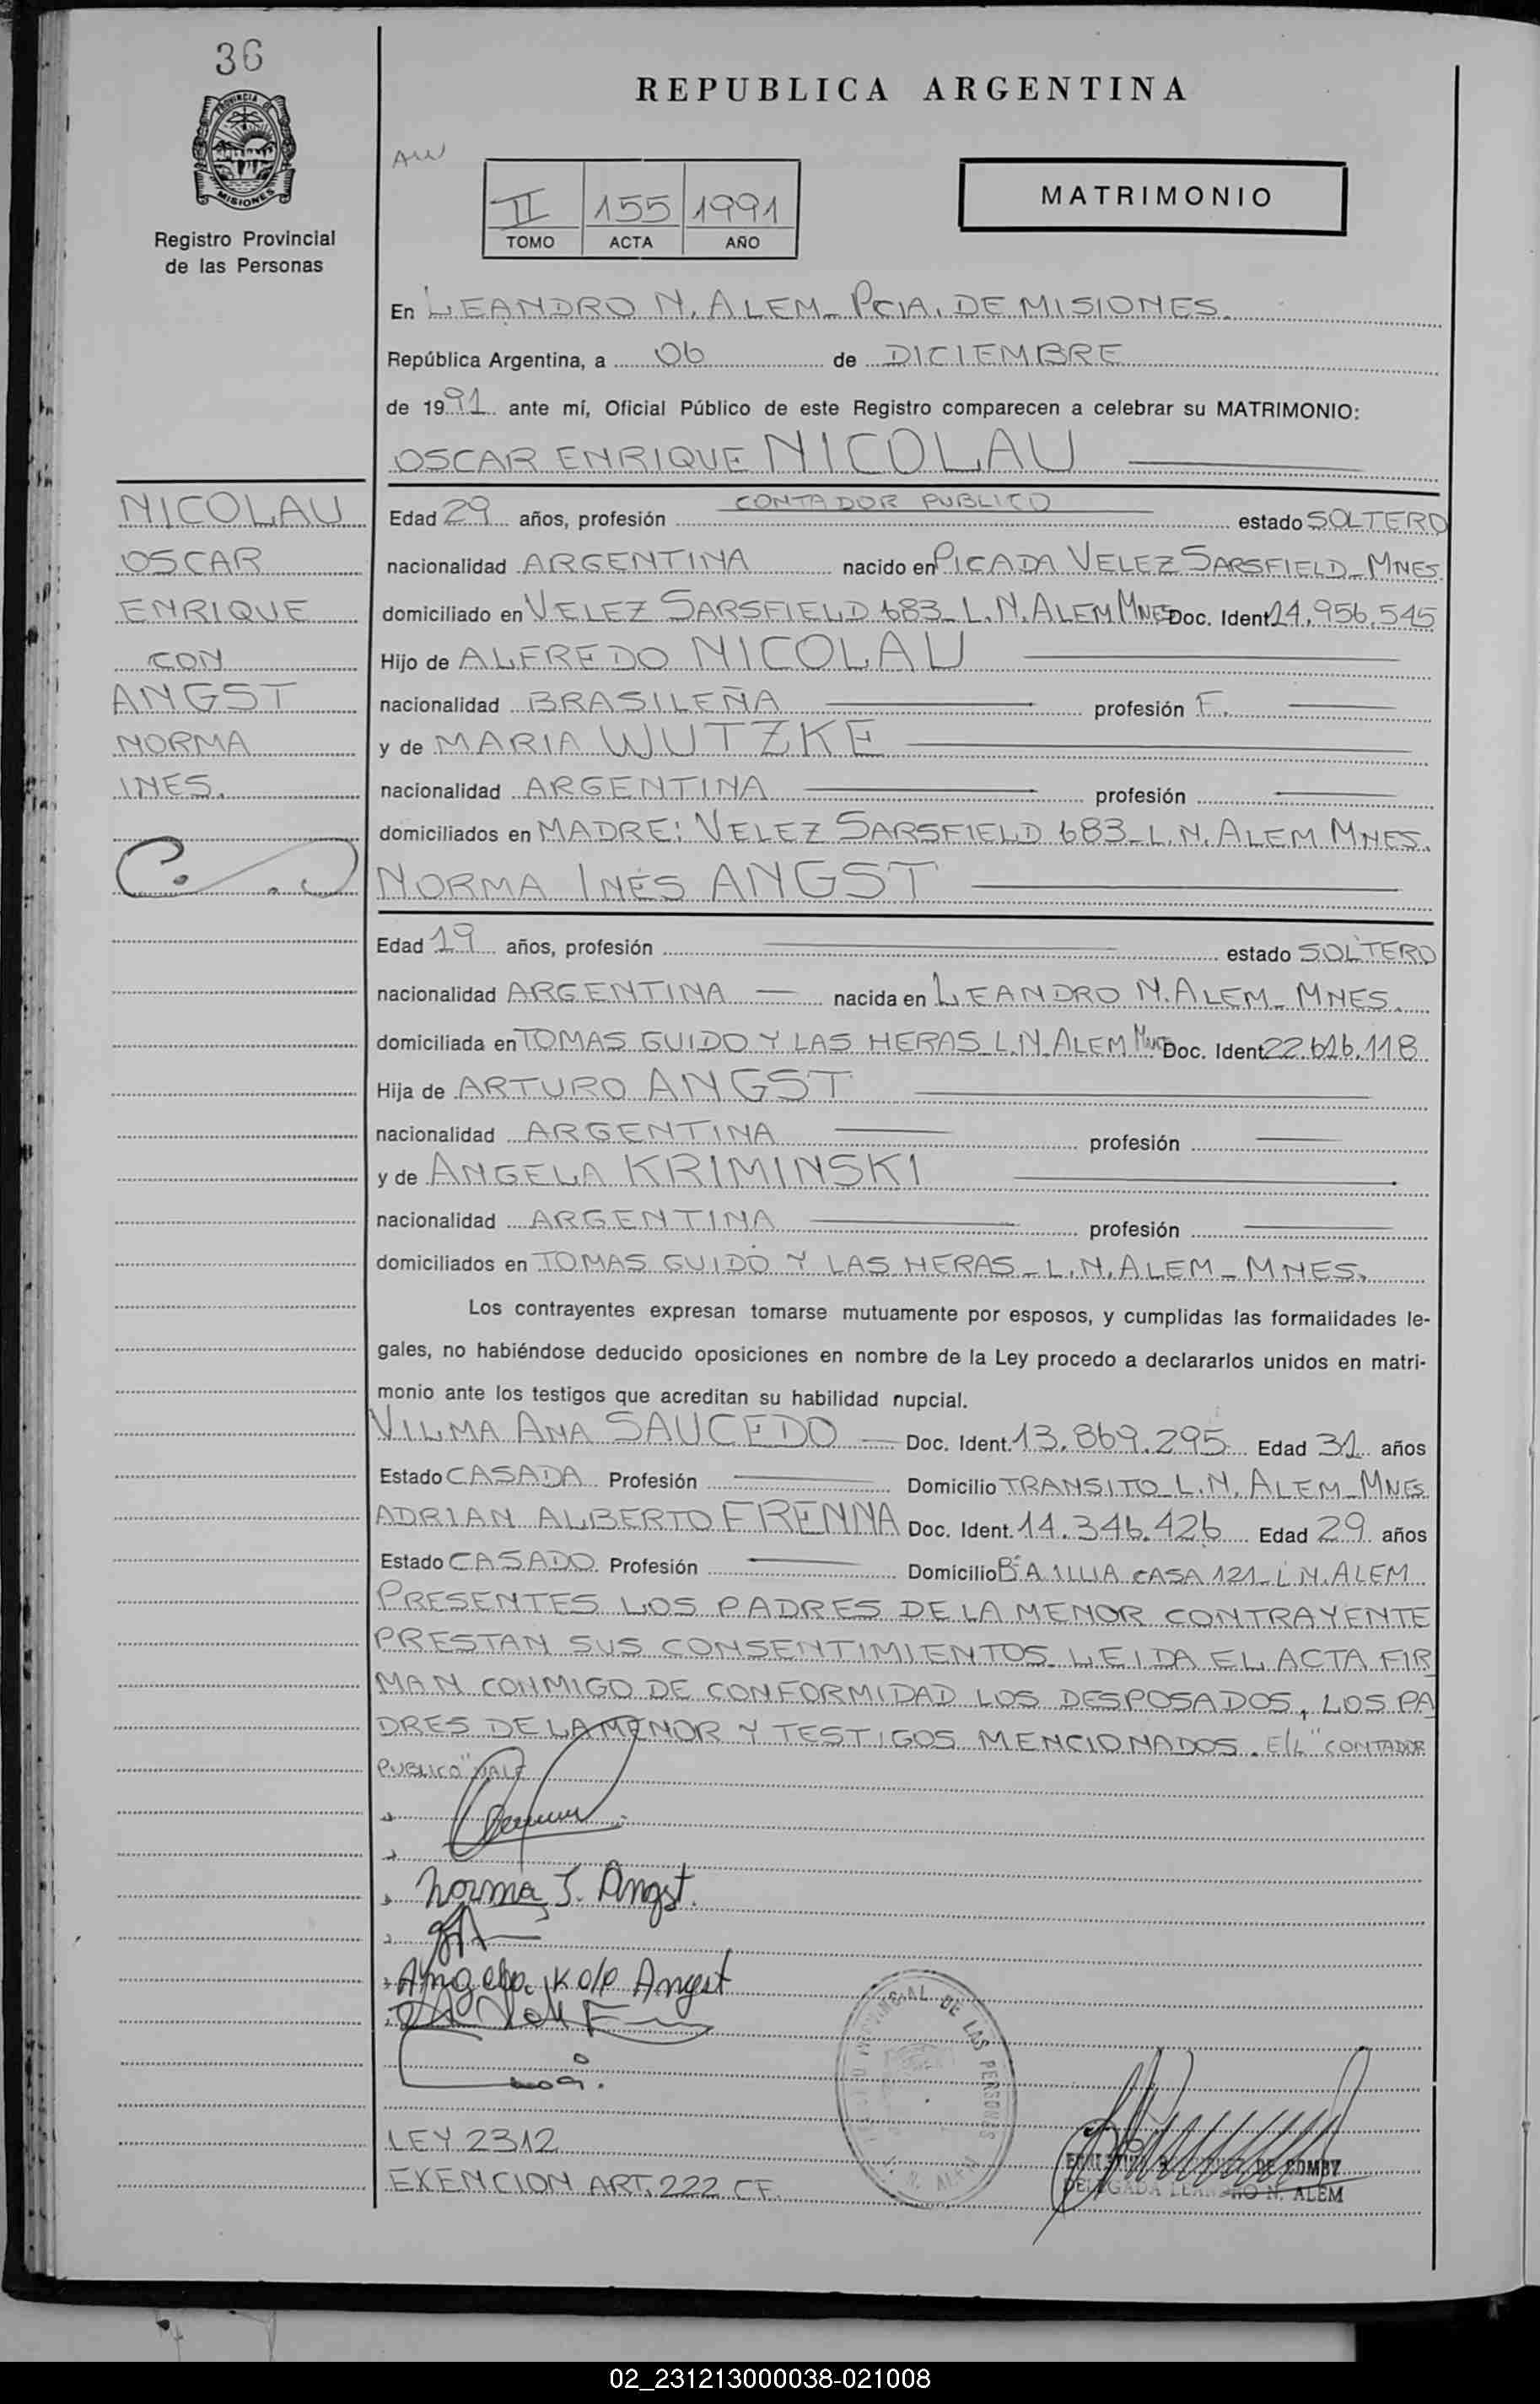 36
PROVINCIA DE
MISIONES
Registro Provincial
de las Personas
REPUBLICA ARGENTINA
II 155 1991
TOMO ACTA AÑO
MATRIMONIO
En LEANDRO N. ALEM_ PCIA. DE MISIONES.
República Argentina, a 06 de DICIEMBRE
de 1991 ante mí, Oficial Público de este Registro comparecen a celebrar su MATRIMONIO:
OSCAR ENRIQUE NICOLAU
NICOLAU
OSCAR
ENRIQUE
CON
ANGST
NORMA
INES.
Edad 29 años, profesión CONTADOR PUBLICO estado SOLTERO
nacionalidad ARGENTINA nacido en PICADA VELEZ SARSFIELD_MNES.
domiciliado en VELEZ SARSFIELD 683_L.N.ALEM MNES Doc. Ident 14.956.545
Hijo de ALFREDO NICOLAU
nacionalidad BRASILEÑA profesión F.
y de MARIA WUTZKE
nacionalidad ARGENTINA profesión
domiciliados en MADRE: VELEZ SARSFIELD 683_L.N.ALEM MNES.
NORMA INÉS ANGST
Edad 19 años, profesión estado SOLTERO
nacionalidad ARGENTINA nacida en LEANDRO N.ALEM_MNES.
domiciliada en TOMAS GUIDO Y LAS HERAS_L.N.ALEM MNES Doc. Ident 22.616.118
Hija de ARTURO ANGST
nacionalidad ARGENTINA profesión
y de ANGELA KRIMINSKI
nacionalidad ARGENTINA profesión
domiciliados en TOMAS GUIDO Y LAS HERAS_L.N.ALEM_MNES.
Los contrayentes expresan tomarse mutuamente por esposos, y cumplidas las formalidades le-
gales, no habiéndose deducido oposiciones en nombre de la Ley procedo a declararlos unidos en matri-
monio ante los testigos que acreditan su habilidad nupcial.
VILMA ANA SAUCEDO Doc. Ident. 13.869.295 Edad 31 años
Estado CASADA Profesión Domicilio TRANSITO_L.N.ALEM_MNES
ADRIAN ALBERTO FRENNA Doc. Ident. 14.346.426 Edad 29 años
Estado CASADO Profesión Domicilio Bº A. ILLIA CASA 121_L.N.ALEM
PRESENTES LOS PADRES DE LA MENOR CONTRAYENTE
PRESTAN SUS CONSENTIMIENTOS_LEIDA EL ACTA FIR
MAN CONMIGO DE CONFORMIDAD LOS DESPOSADOS, LOS PA
DRES DE LA MENOR Y TESTIGOS MENCIONADOS. E/L "CONTADOR
PUBLICO" VALE
Norma I. Angst.
Angela K d/e Angst
PROVINCIAL DE LAS PERSONAS
L. N. ALEM
LEY 2312
EXENCION ART. 222 CF.
DE BOMBY
DELEGADA LEANDRO N. ALEM
02_231213000038-021008